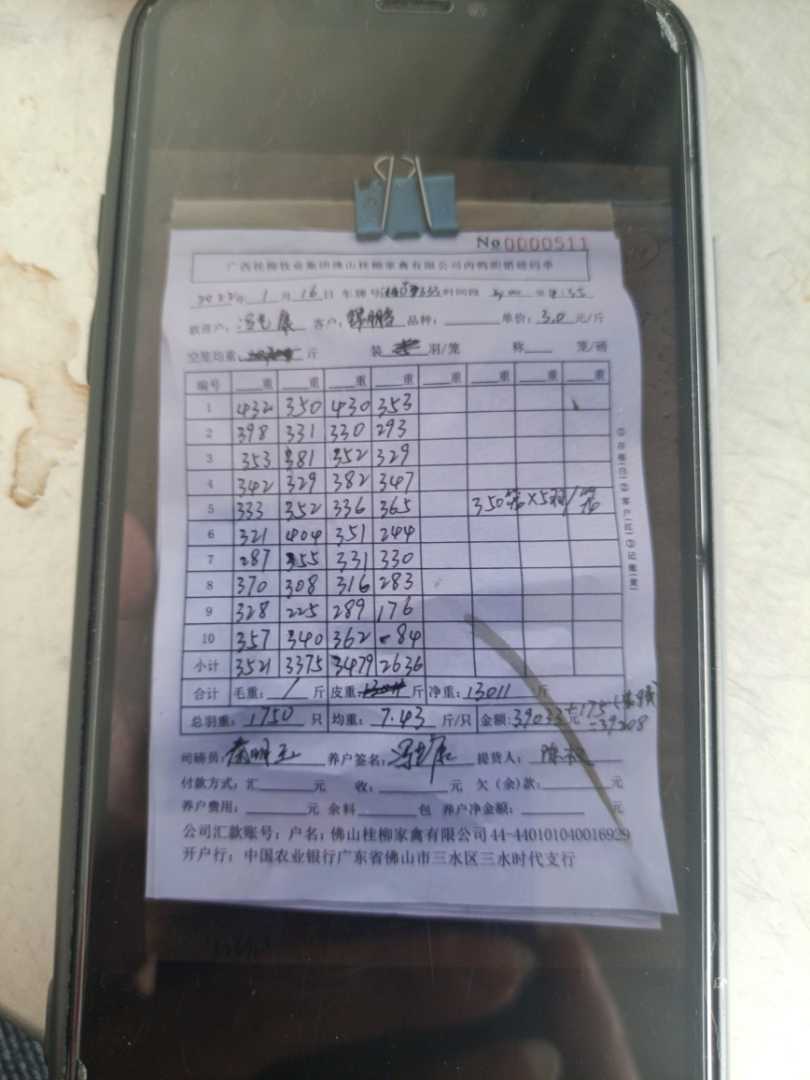 No 0000511
广西桂柳牧业集团佛山桂柳家禽有限公司肉鸭毛鸭磅码单
2022年 1 月 16 日 车牌号 时间段
养户: 客户: 品种: 单价: 3.0 元/斤
空笼均重: 斤 装 羽/笼 称 笼/磅
编号 重 重 重 重 重 重 重 重
1 432 350 430 353
2 398 331 330 293
3 353 381 352 329
4 342 329 382 347
5 333 352 336 365 350笼×5羽/笼
6 321 404 351 244
7 287 355 331 330
8 370 308 316 283
9 328 225 289 176
10 357 340 362 -84
小计 3521 3375 3479 2636
合计 毛重: / 斤 皮重: 斤 净重: 13011 斤
总羽重: 1750 只 均重: 7.43 斤/只 金额: 39033元 +175
=39208
司磅员: 养户签名: 提货人:
付款方式: 汇 元 收: 元 欠(余)款: 元
养户费用: 元 余料 包 养户净金额: 元
公司汇款账号: 户名: 佛山桂柳家禽有限公司 44-440101040016929
开户行: 中国农业银行广东省佛山市三水区三水时代支行